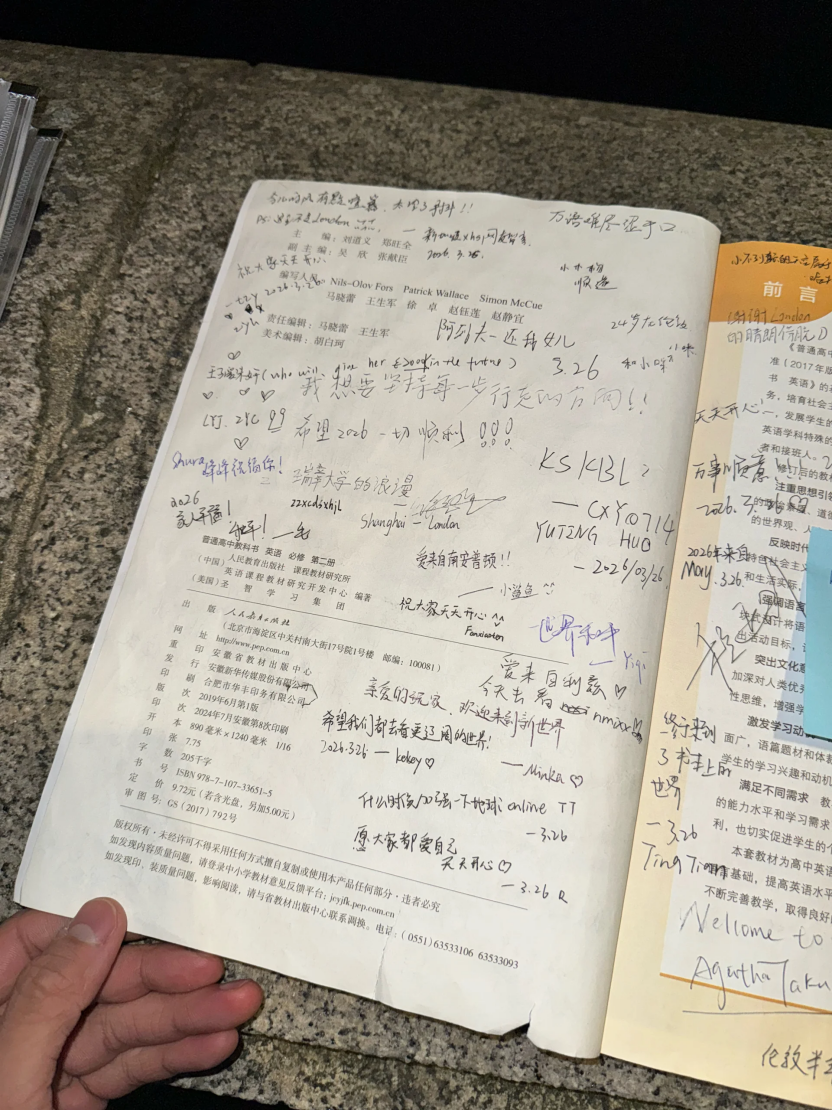 万语难尽混于口
PS: 这本不是London
2026.3.26.
主　编：刘道义　郑旺全
副主编：吴　欣　张献臣
祝大家天天开心
小木棉
顺遂
编写人员：Nils-Olov Fors　Patrick Wallace　Simon McCue
马晓蕾　王生军　徐　卓　赵钰莲　赵静宜
tzy 2026.3.26.
zyh
责任编辑：马晓蕾　王生军
美术编辑：胡白珂
阿尔夫—还我女儿
3.26
(who will give her good in the future)
我想要坚持每一步行走的方向!!
LYJ. ZYC 99
希望2026一切顺利!!!
Shura
祝福你！
瑞幸大学的浪漫
zzxcdsxhjl
Shanghai — London
KSKBL
— CXY0714
YUTING HUO
— 2026/03/26.
2026
家人平安！
普通高中教科书　英语　必修　第二册
（中国）人民教育出版社　课程教材研究所
英语课程教材研究开发中心　编著
（美国）圣　智　学　习　集　团
爱来自南安普顿!!
— 小鲨鱼
祝大家天天开心^^
Fanxiaoton
世界和平
— Yiqi
出　版　人民教育出版社
（北京市海淀区中关村南大街17号院1号楼　邮编：100081）
网　址　http://www.pep.com.cn
重　印　安徽省教材出版中心
发　行　安徽新华传媒股份有限公司
印　刷　合肥市华丰印务有限公司
版　次　2019年6月第1版
印　次　2024年7月安徽第8次印刷
开　本　890毫米×1240毫米　1/16
印　张　7.75
字　数　205千字
书　号　ISBN 978-7-107-33651-5
定　价　9.72元（若含光盘，另加5.00元）
审图号：GS（2017）792号
爱来自利兹♡
今天去看nmixx
亲爱的玩家　欢迎来到新世界
希望我们都去看更辽阔的世界！
2026.3.26 — kekey♡
— Minka♡
什么时候加强一下地球online TT
— 3.26
愿大家都爱自己
天天开心♡
— 3.26 R
版权所有·未经许可不得采用任何方式擅自复制或使用本产品任何部分·违者必究
如发现内容质量问题，请登录中小学教材意见反馈平台：jcyjfk.pep.com.cn
如发现印、装质量问题，影响阅读，请与省教材出版中心联系调换。电话：（0551）63533106　63533093
前言
谢谢London
的晴朗
《普通高中
准（2017年版
书　英语》的
务，培育社会
天天开心
，发展学生的
英语学科特殊的
者和接班人。
万事顺意!!!
修订后的教材
注重思想引领
2026.3.26
的世界观、人
反映时代
2026年来自
May.3.26
特色社会主义
和生活实际，
强调语言
设计将语
出活动目标，
突出文化意
加深对人类优秀
性思维，增强学
激发学习动
面广，语篇题材和体裁
学生的学习兴趣和动机
终于来到
了书本上的
世界
— 3.26
Ting Tian
满足不同需求　教
的能力水平和学习需求
利，也切实促进学生的个
本套教材为高中英语
育基础，提高英语水平
不断完善教学，取得良好
Wellcome to
Agatha Taku